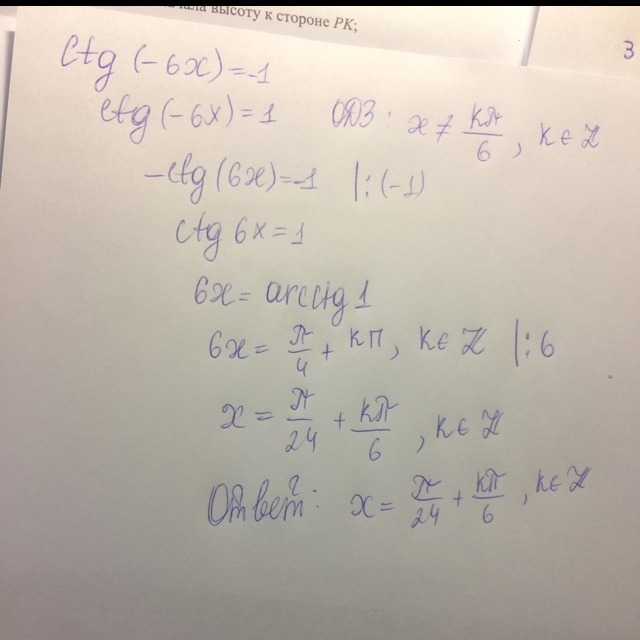 ала высоту к стороне PK;
3
ctg (-6x) = -1
ctg (-6x) = 1 ОДЗ: x ≠ kπ/6, k ∈ Z
-ctg (6x) = -1 |:(-1)
ctg 6x = 1
6x = arcctg 1
6x = π/4 + kπ, k ∈ Z |:6
x = π/24 + kπ/6, k ∈ Z
Ответ: x = π/24 + kπ/6, k ∈ Z